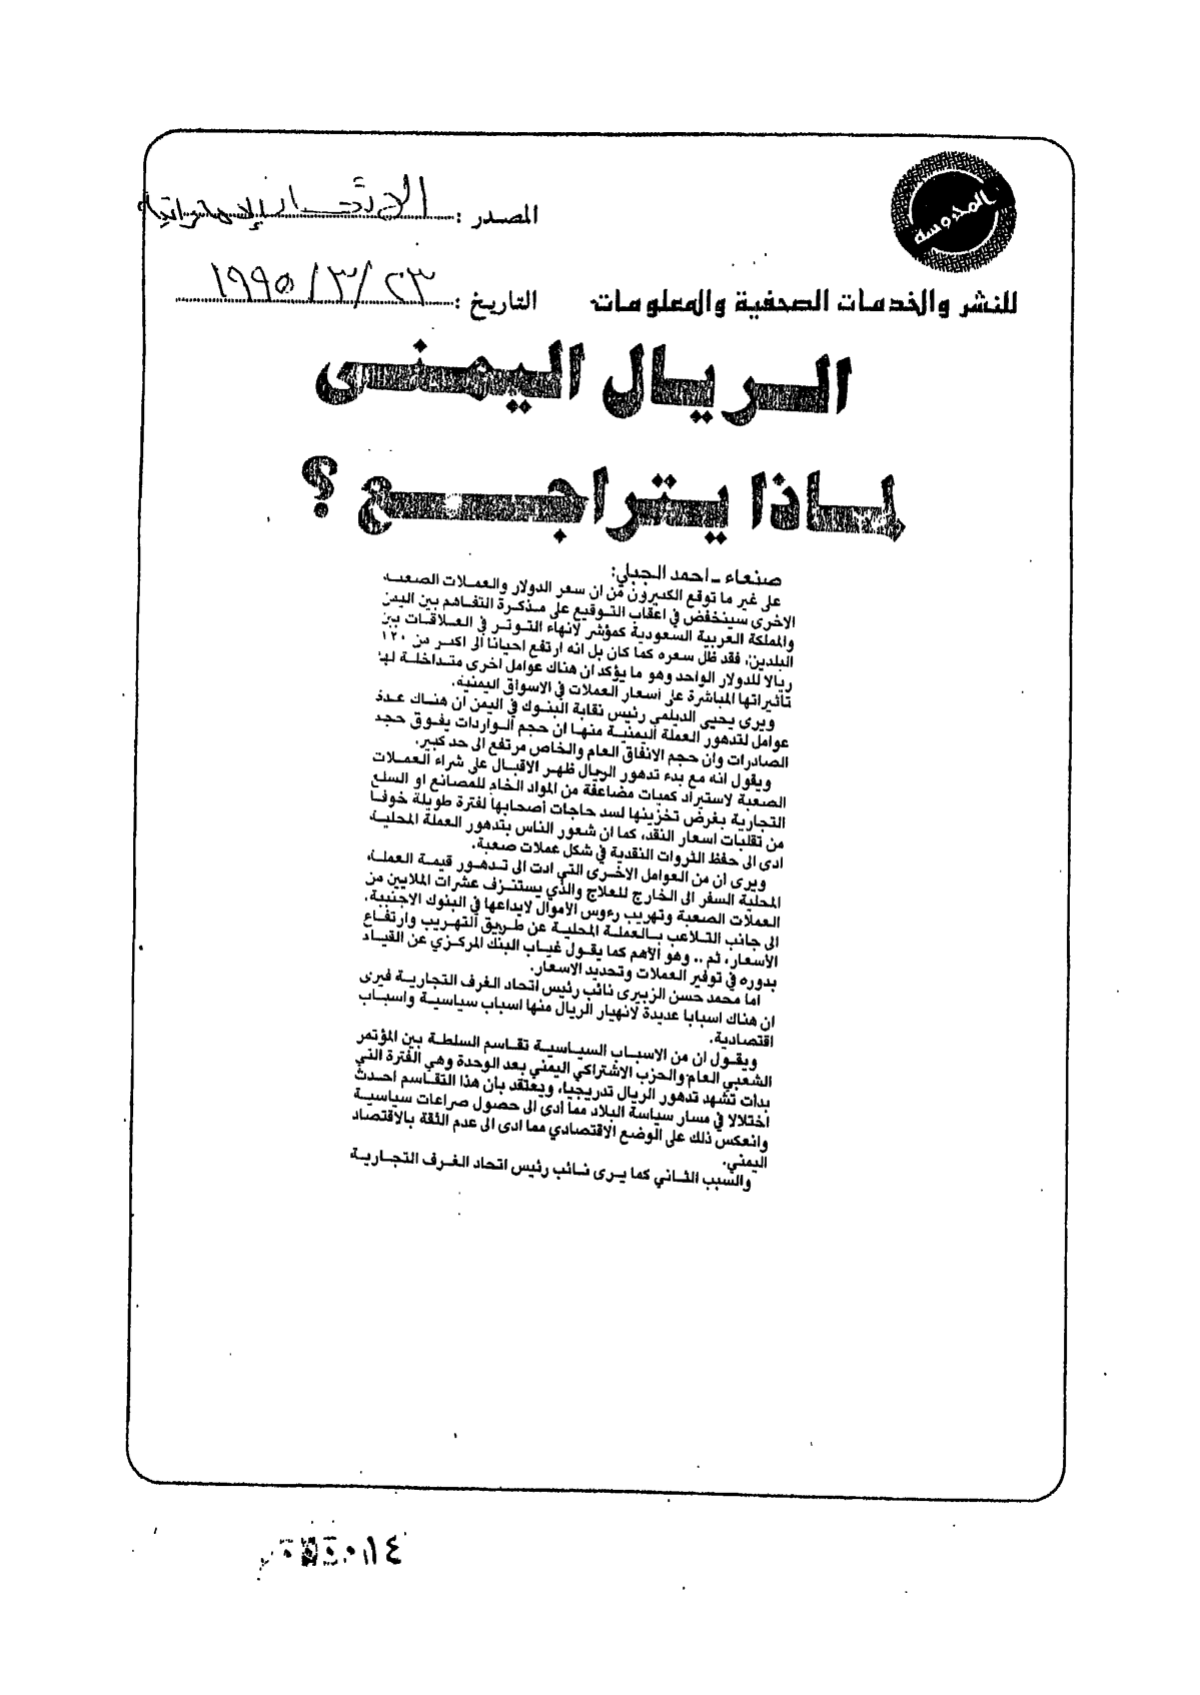 المحروسة
المصدر :
التاريخ : ٢٣/٣/١٩٩٥
للنشر والخدمات الصحفية والمعلومات
الريال اليمنى
لماذا يتراجع ؟
صنعاء ـ احمد الجبلي:
على غير ما توقع الكثيرون من ان سعر الدولار والعملات الصعبة
الاخرى سينخفض في اعقاب التوقيع على مذكرة التفاهم بين اليمن
والمملكة العربية السعودية كمؤشر لانهاء التوتر في العلاقات بين
البلدين، فقد ظل سعره كما كان بل انه ارتفع احيانا الى اكثر من ١٢٠
ريالا للدولار الواحد وهو ما يؤكد ان هناك عوامل اخرى متداخلة لها
تاثيراتها المباشرة على أسعار العملات في الاسواق اليمنية.
ويرى يحيى الديلمي رئيس نقابة البنوك في اليمن ان هناك عدة
عوامل لتدهور العملة اليمنية منها ان حجم الواردات يفوق حجم
الصادرات وان حجم الانفاق العام والخاص مرتفع الى حد كبير.
ويقول انه مع بدء تدهور الريال ظهر الاقبال على شراء العملات
الصعبة لاستيراد كميات مضاعفة من المواد الخام للمصانع او السلع
التجارية بغرض تخزينها لسد حاجات أصحابها لفترة طويلة خوفا
من تقلبات اسعار النقد، كما ان شعور الناس بتدهور العملة المحلية
ادى الى حفظ الثروات النقدية في شكل عملات صعبة.
ويرى ان من العوامل الاخرى التي ادت الى تدهور قيمة العملة
المحلية السفر الى الخارج للعلاج والذي يستنزف عشرات الملايين من
العملات الصعبة وتهريب رءوس الاموال لايداعها في البنوك الاجنبية.
الى جانب التلاعب بالعملة المحلية عن طريق التهريب وارتفاع
الأسعار، ثم .. وهو الأهم كما يقول غياب البنك المركزي عن القيام
بدوره في توفير العملات وتحديد الاسعار.
اما محمد حسن الزبيرى نائب رئيس اتحاد الغرف التجارية فيرى
ان هناك اسبابا عديدة لانهيار الريال منها اسباب سياسية واسباب
اقتصادية.
ويقول ان من الاسباب السياسية تقاسم السلطة بين المؤتمر
الشعبي العام والحزب الاشتراكي اليمني بعد الوحدة وهي الفترة التي
بدات تشهد تدهور الريال تدريجيا، ويعتقد بان هذا التقاسم احدث
اختلالا في مسار سياسة البلاد مما ادى الى حصول صراعات سياسية
وانعكس ذلك على الوضع الاقتصادي مما ادى الى عدم الثقة بالاقتصاد
اليمني.
والسبب الثاني كما يرى نائب رئيس اتحاد الغرف التجارية